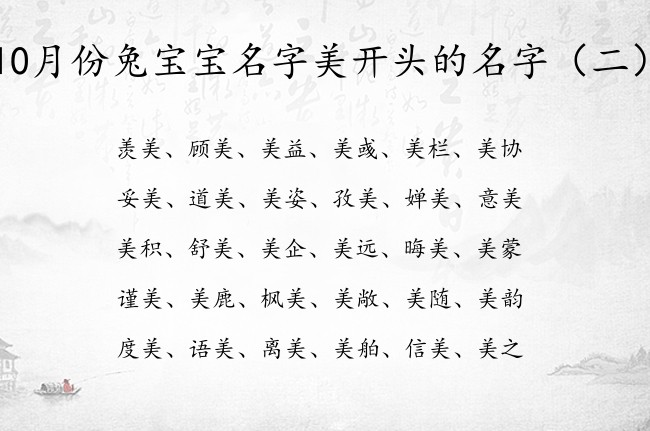 10月份兔宝宝名字美开头的名字（二）
羡美、顾美、美益、美彧、美栏、美协
妥美、道美、美姿、孜美、婵美、意美
美积、舒美、美企、美远、晦美、美蒙
谨美、美鹿、枫美、美敞、美随、美韵
度美、语美、离美、美舶、信美、美之